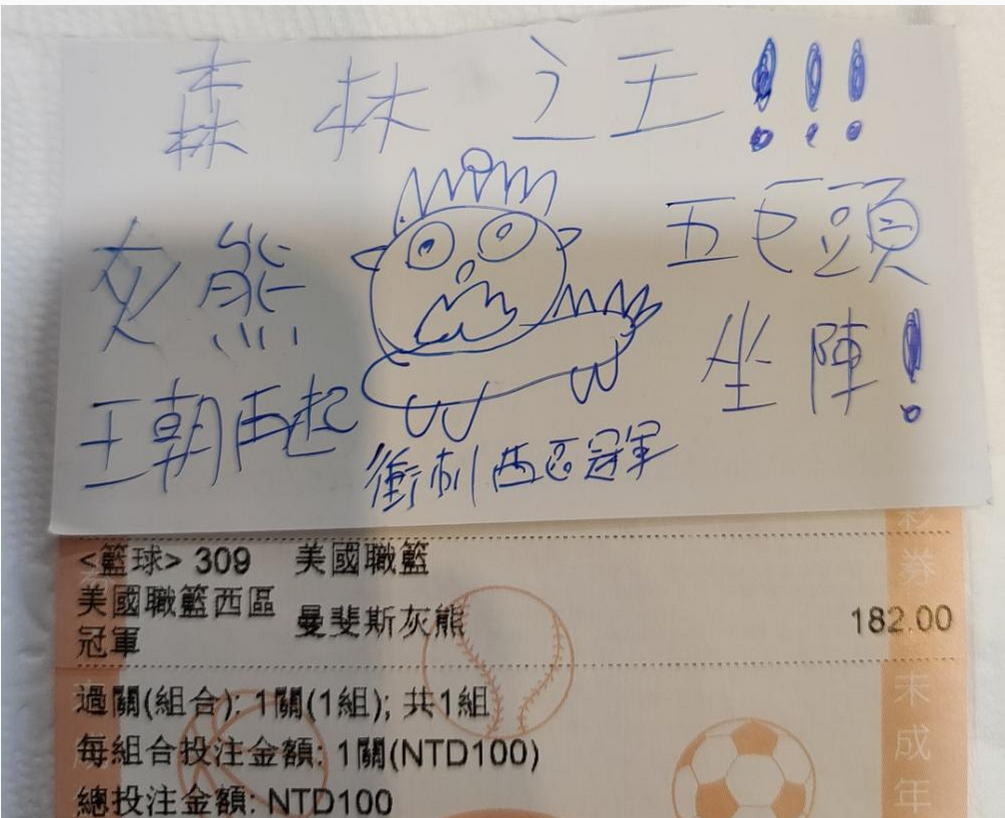 森林之王!!!
灰熊
王朝再起
五毛頭
坐陣!
衝刺西區冠軍
<籃球> 309 美國職籃
美國職籃西區冠軍 曼斐斯灰熊 182.00
過關(組合): 1關(1組); 共1組
每組合投注金額: 1關(NTD100)
總投注金額: NTD100
彩券
未成年